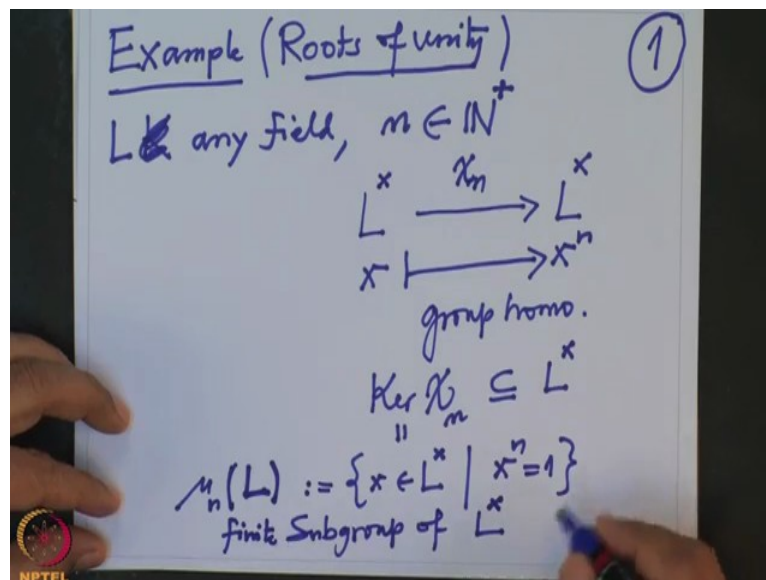 Example (Roots of unity)
1
L any field, n ∈ ℕ⁺
L^× —χₙ→ L^×
x ↦ xⁿ
group homo.
Ker χₙ ⊆ L^×
||
μₙ(L) := {x ∈ L^× | xⁿ=1}
finite Subgroup of L^×
NPTEL